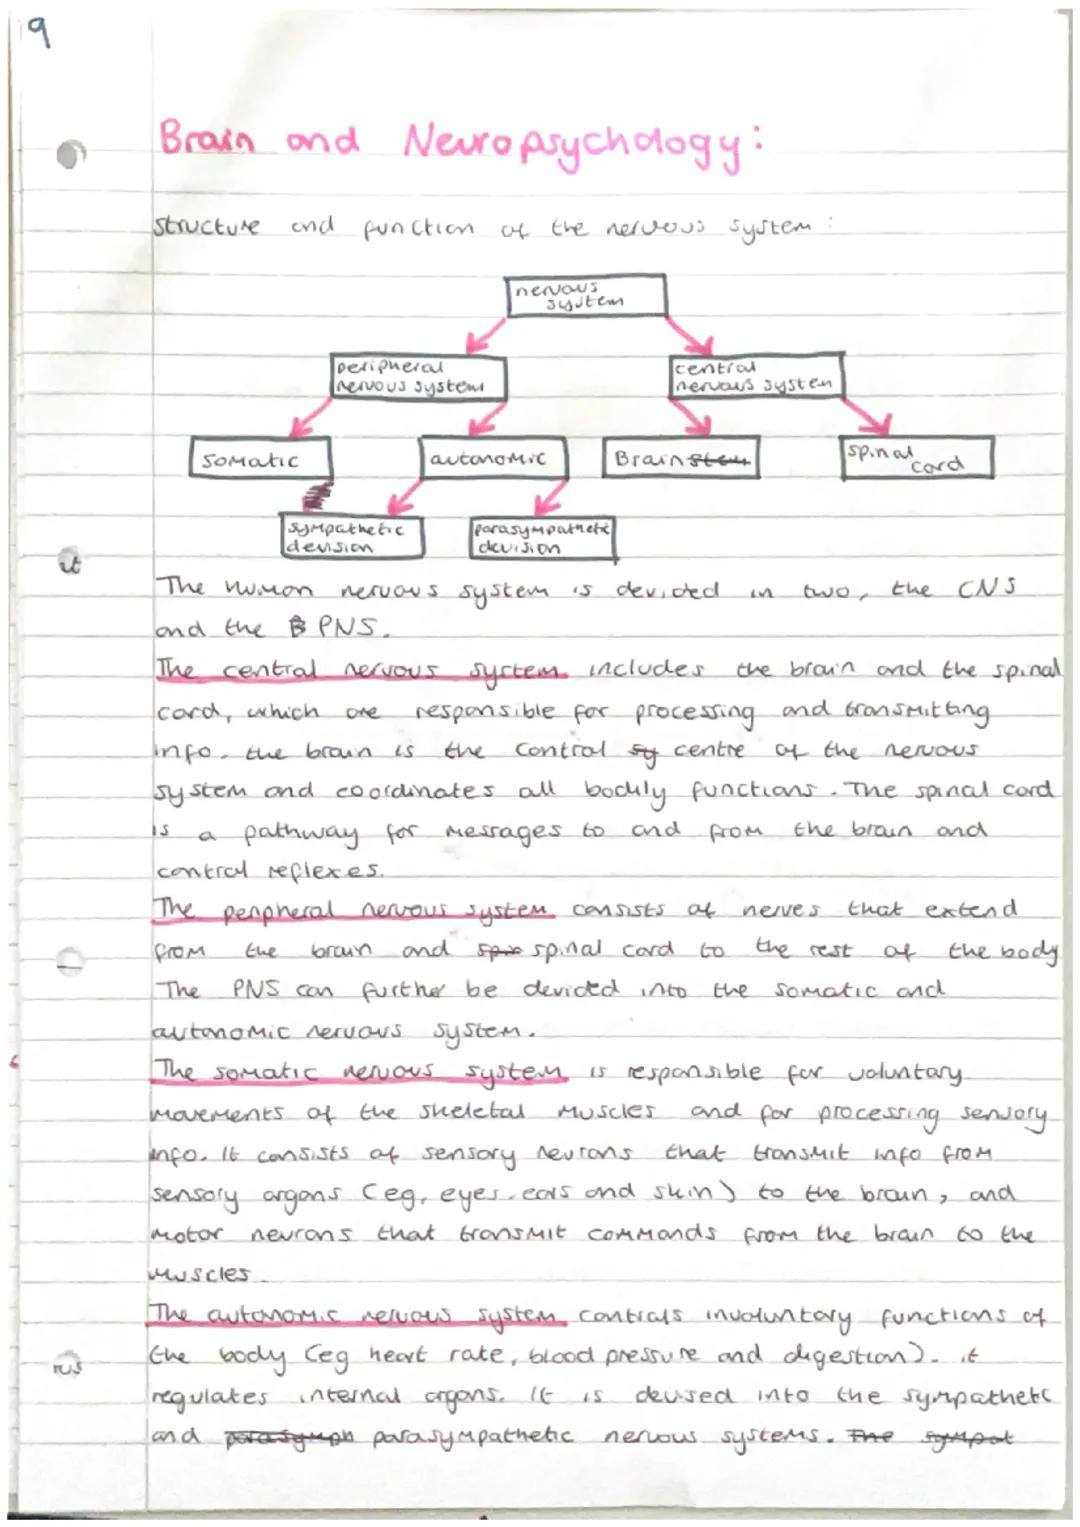 9
Brain and Neuropsychology:
structure and function of the nervous system:
nervous
system
peripheral
nervous system
central
nervous system
somatic
autonomic
Brain stem
spinal
cord
sympathetic
devision
parasympathetic
devision
it
The human nervous system is devided in two, the CNS
and the B PNS.
The central nervous system includes the brain and the spinal
cord, which are responsible for processing and transmitting
info. the brain is the control sy centre of the nervous
system and coordinates all bodily functions. The spinal cord
is a pathway for messages to and from the brain and
control reflexes.
The peripheral nervous system consists of nerves that extend
from the brain and spin spinal cord to the rest of the body
The PNS can further be devided into the somatic and
autonomic nervous system.
The somatic nervous system is responsible for voluntary
movements of the skeletal muscles and for processing sensory
info. It consists of sensory neurons that transmit info from
sensory organs (eg, eyes, ears and skin) to the brain, and
motor neurons that transmit commands from the brain to the
muscles.
The autonomic nervous system controls involuntary functions of
the body (eg heart rate, blood pressure and digestion). it
regulates internal organs. It is devised into the sympathetc
and parasymph parasympathetic nervous systems. The sympat